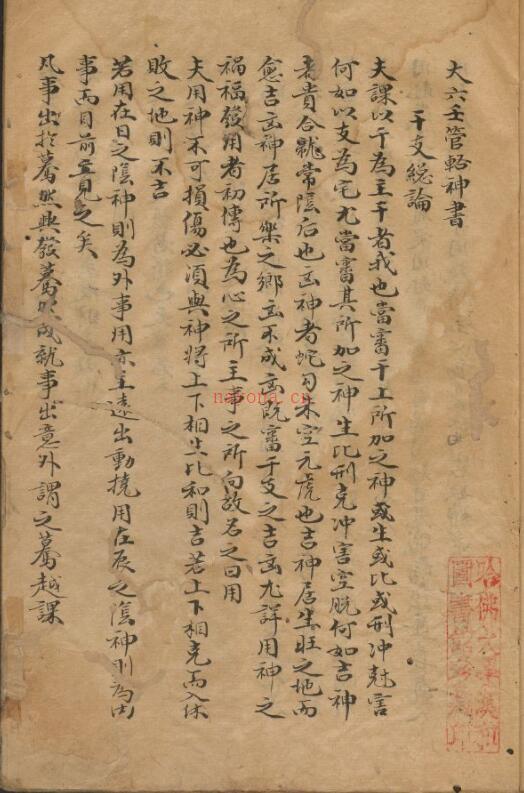 大六壬管輅神書
干支総論
夫課以干為主干者我也當審干上所加之神或生或比或刑冲尅害
何如以支為宅尤當審其所加之神生比刑克冲害空脱何如吉神
者貴合龍常陰后也凶神者蛇勾朱空元虎也吉神居生旺之地而
愈吉凶神居所樂之鄉凶不成凶既審干支之吉凶尤詳用神之
禍福發用者初傳也為心之所主事之所向故名之曰用
夫用神不可損傷必須與神將上下相生比和則吉若上下相克而入休
敗之地則不吉
若用在日之陰神則為外事用亦主遠出動撓用在辰之陰神則為内
事而目前立見之矣
凡事出於驀然興發驀然成就事出意外謂之驀越課
nabona.cn
哈佛大學漢和圖書館珍藏印